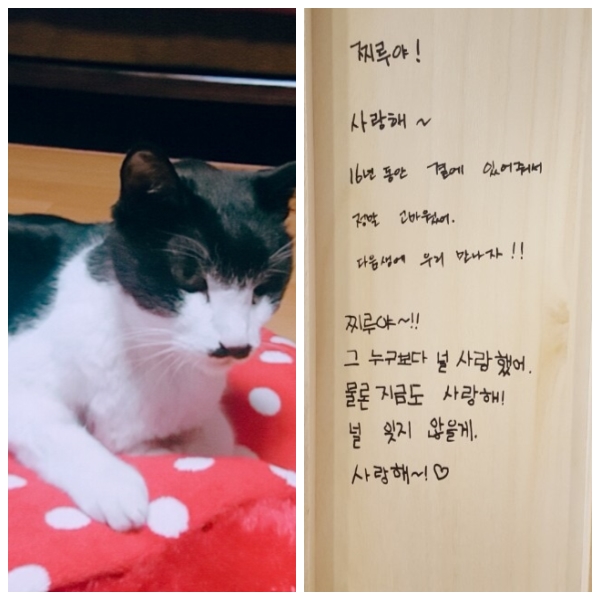 찌루야!
사랑해~
16년 동안 곁에 있어줘서
정말 고마웠어.
다음생에 우리 만나자!!
찌루야~!!
그 누구보다 널 사랑했어.
물론 지금도 사랑해!
널 잊지 않을게.
사랑해~!♡